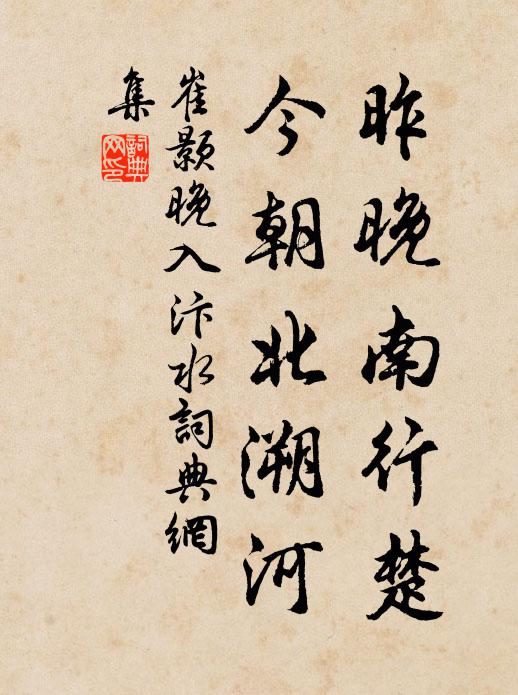 昨晚南行楚
今朝北溯河
崔顥晚入汴水詞典網
集
詞典網印